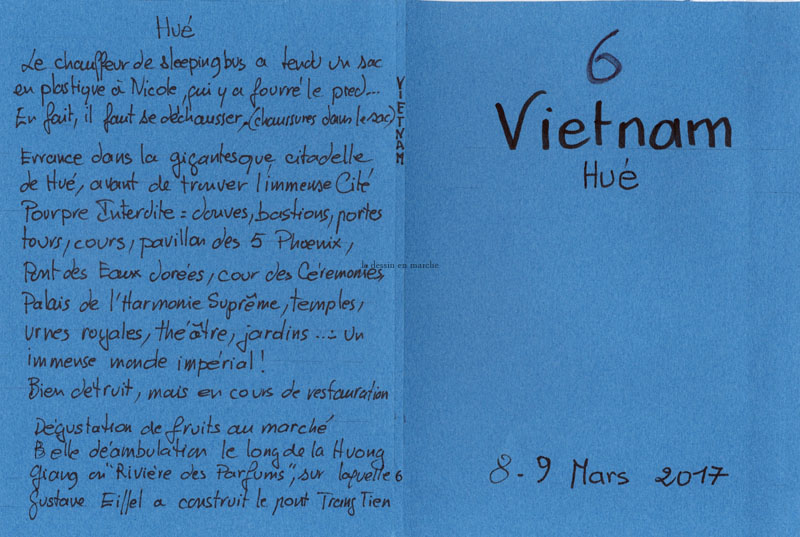 Hué
Le chauffeur de sleeping bus a tendu un sac
en plastique à Nicole, qui y a fourré le pied...
En fait, il faut se déchausser, (chaussures dans le sac)
Errance dans la gigantesque citadelle
de Hué, avant de trouver l'immense Cité
Pourpre Interdite : douves, bastions, portes
tours, cours, pavillon des 5 Phoenix,
Pont des Eaux dorées, cour des Cérémonies
Palais de l'Harmonie Suprême, temples,
urnes royales, théâtre, jardins ... : un
immense monde impérial !
Bien détruit, mais en cours de restauration
Dégustation de fruits au marché
Belle déambulation le long de la Huong
Giang ou "Rivière des Parfums", sur laquelle
Gustave Eiffel a construit le pont Trang Tien
VIETNAM
6
la dessin en marche
6
Vietnam
Hué
8-9 Mars 2017